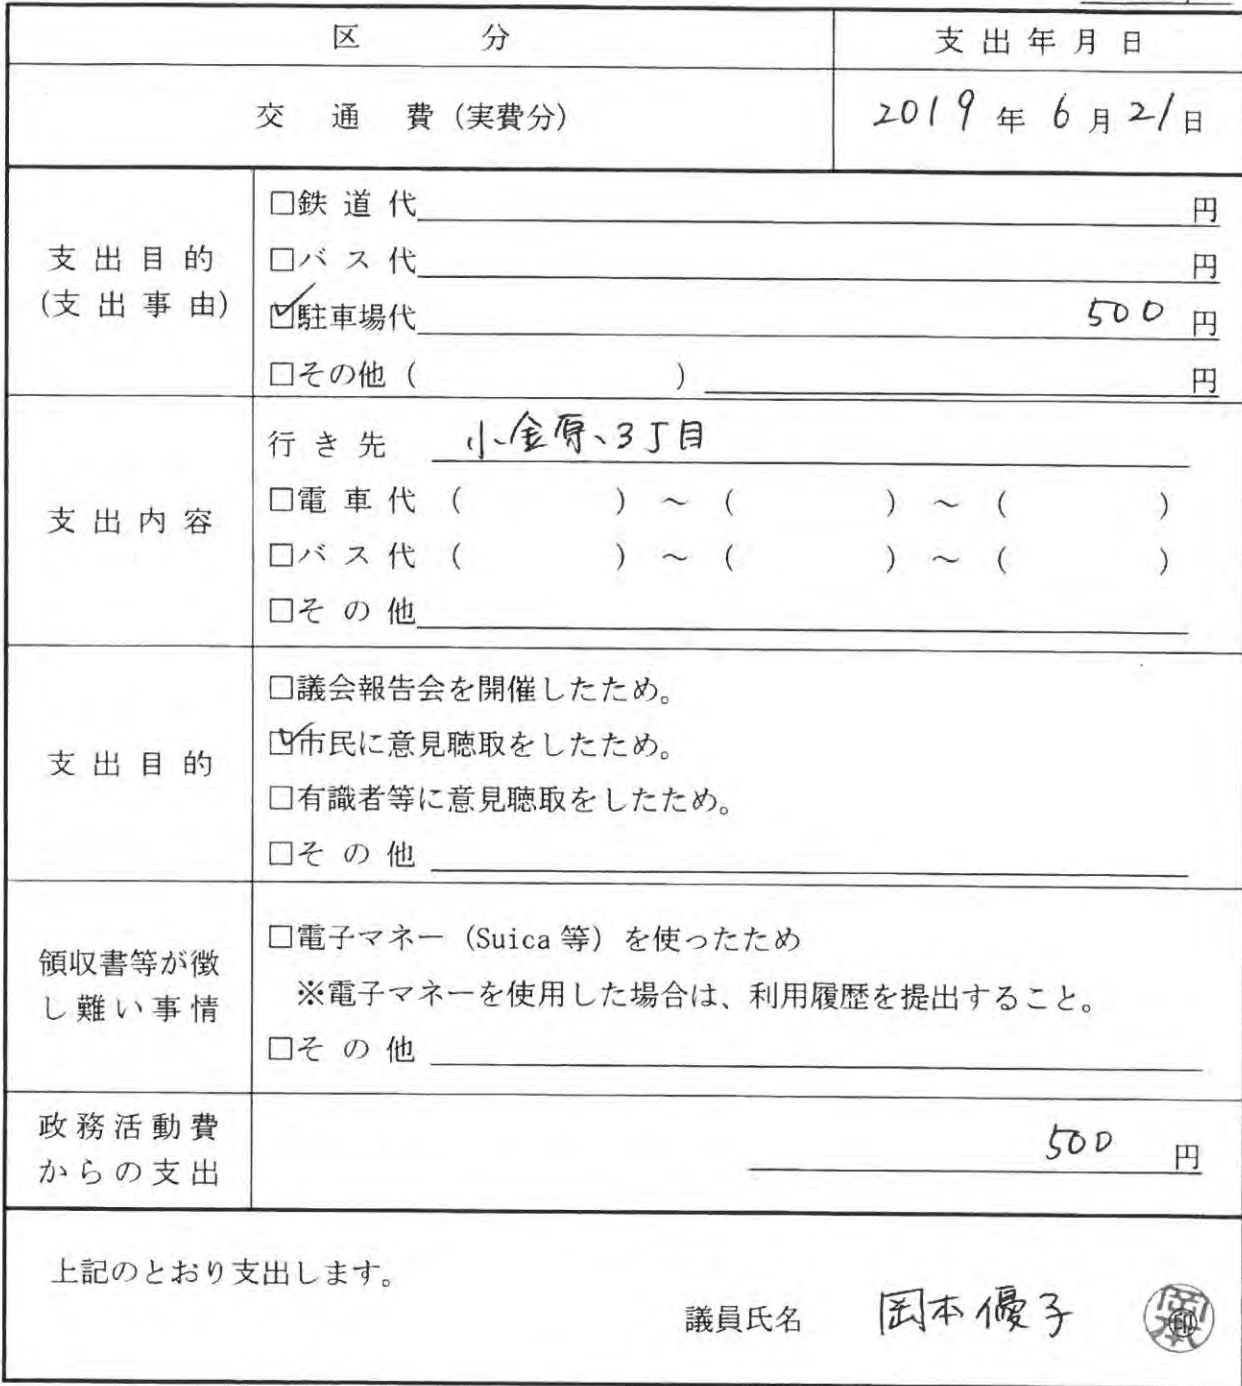 区 分 支出年月日
交 通 費 (実費分) 2019 年 6 月 21 日
支出目的
(支出事由)
□鉄道代 円
□バス代 円
☑駐車場代 500 円
□その他 ( ) 円
支出内容
行き先 小金原、3丁目
□電車代 ( ) ～ ( ) ～ ( )
□バス代 ( ) ～ ( ) ～ ( )
□その他
支出目的
□議会報告会を開催したため。
☑市民に意見聴取をしたため。
□有識者等に意見聴取をしたため。
□その他
領収書等が徴
し難い事情
□電子マネー (Suica 等) を使ったため
※電子マネーを使用した場合は、利用履歴を提出すること。
□その他
政務活動費
からの支出
500 円
上記のとおり支出します。
議員氏名 岡本優子 印 岡本